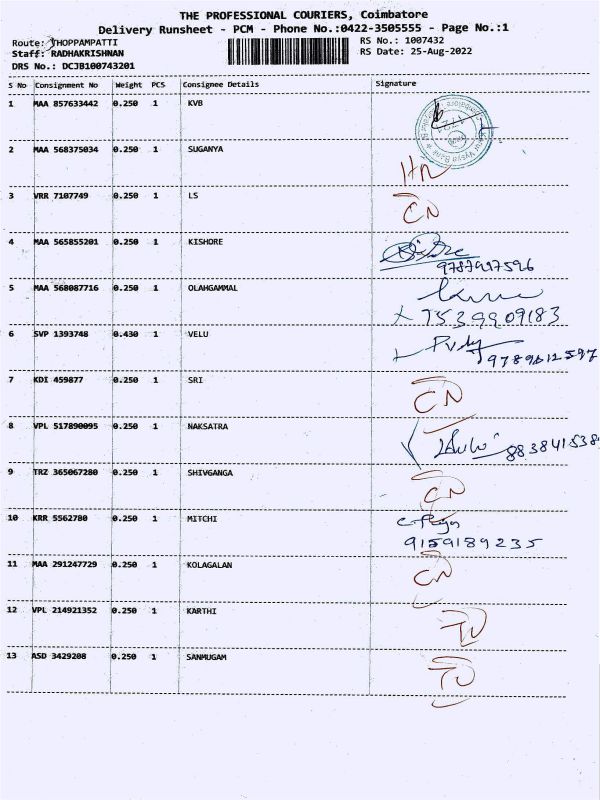 THE PROFESSIONAL COURIERS, Coimbatore
Delivery Runsheet - PCM - Phone No.:0422-3505555 - Page No.:1
Route: THOPPAMPATTI RS No.: 1007432
Staff: RADHAKRISHNAN RS Date: 25-Aug-2022
DRS No.: DCJB100743201
S No Consignment No Weight PCS Consignee Details Signature
1 MAA 857633442 0.250 1 KVB
2 MAA 568375034 0.250 1 SUGANYA
3 VRR 7107749 0.250 1 LS CN
4 MAA 565855201 0.250 1 KISHORE
5 MAA 568087716 0.250 1 OLAHGAMMAL
7539909183
6 SVP 1393748 0.430 1 VELU
9789612597
7 KDI 459877 0.250 1 SRI CN
8 VPL 517890095 0.250 1 NAKSATRA
9 TRZ 365067280 0.250 1 SHIVGANGA CN
10 KRR 5562780 0.250 1 MITCHI
9159189235
11 MAA 291247729 0.250 1 KOLAGALAN CN
12 VPL 214921352 0.250 1 KARTHI
13 ASD 3429208 0.250 1 SANMUGAM